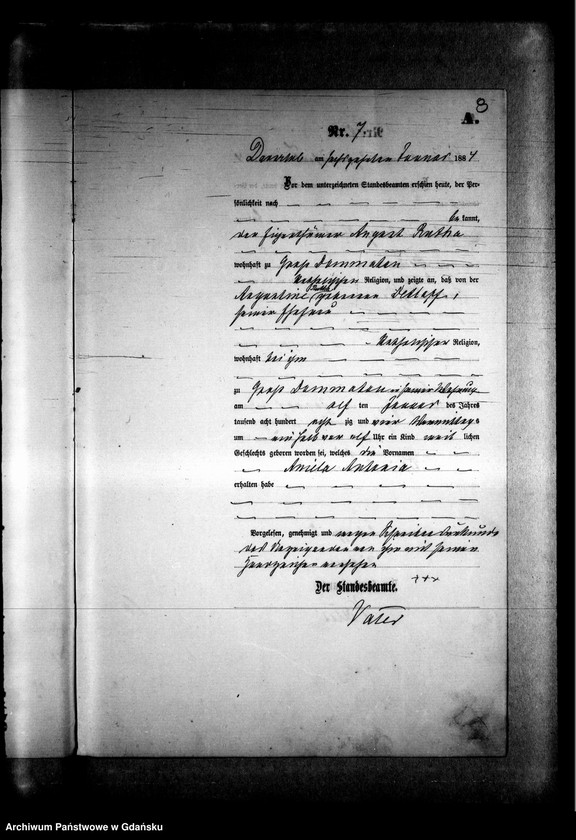 8
A.
Nr. 7.
am sechszehnten Januar 1884
Vor dem unterzeichneten Standesbeamten erschien heute, der Per-
sönlichkeit nach
be kannt,
der Eigenthümer August
wohnhaft zu Groß Dommatau
katholischer Religion, und zeigte an, daß von der
Augustine geborenen
seiner Ehefrau
katholischer Religion,
wohnhaft bei ihm
zu Groß Dommatau in seiner Wohnung
am elf ten Januar des Jahres
tausend acht hundert acht zig und vier Vormittags
um ein halb vor elf Uhr ein Kind weib lichen
Geschlechts geboren worden sei, welches die Vornamen
Aniela Antonia
erhalten habe
Vorgelesen, genehmigt und wegen
des Anzeigenden von ihm mit seinem
Handzeichen versehen
+++
Der Standesbeamte.
Vater
Archiwum Państwowe w Gdańsku